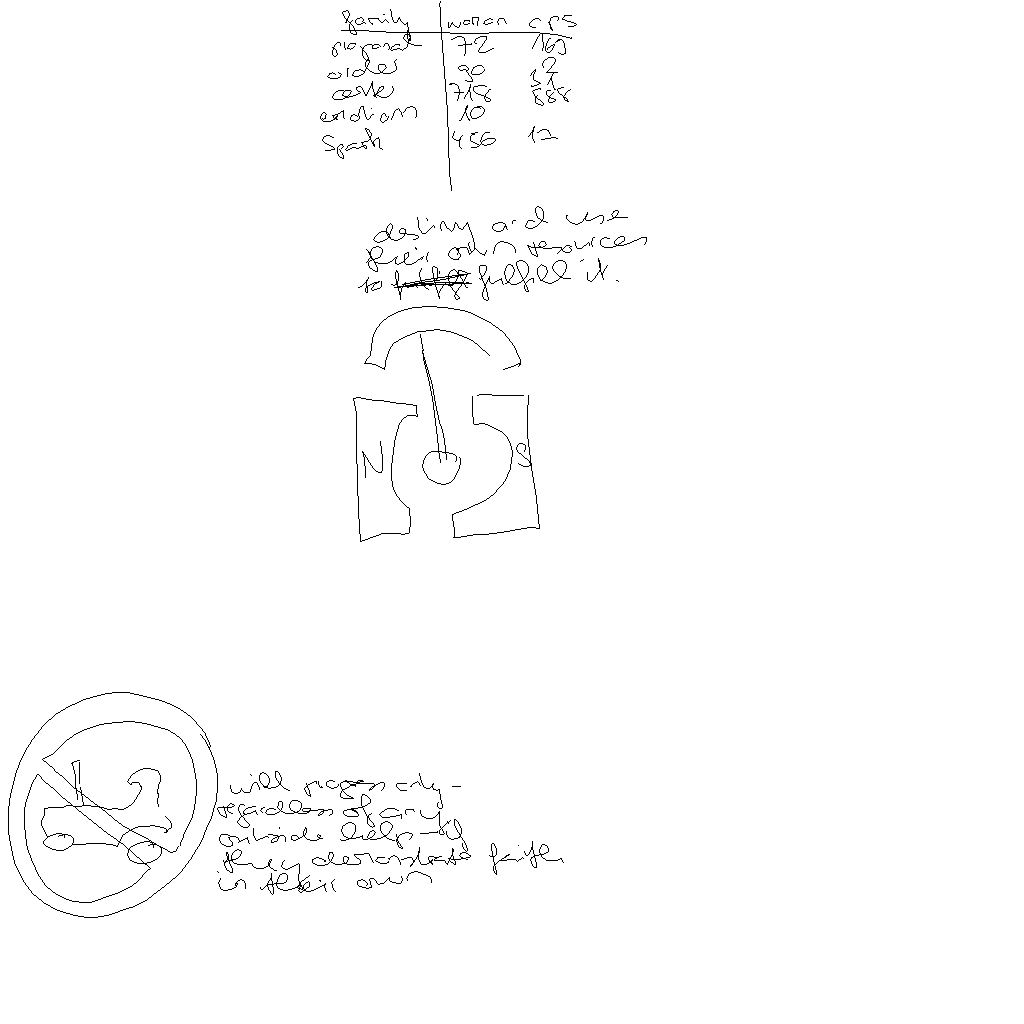 family woman cps
proposal 72 169
order 90 2
castle 718 31
888
emotions 10
Spark 456 12
destiny and use
their own resources
to fulfill it.
N S
will progress only -
regardless of any
outside help - if
they demonstrate faith
in their own